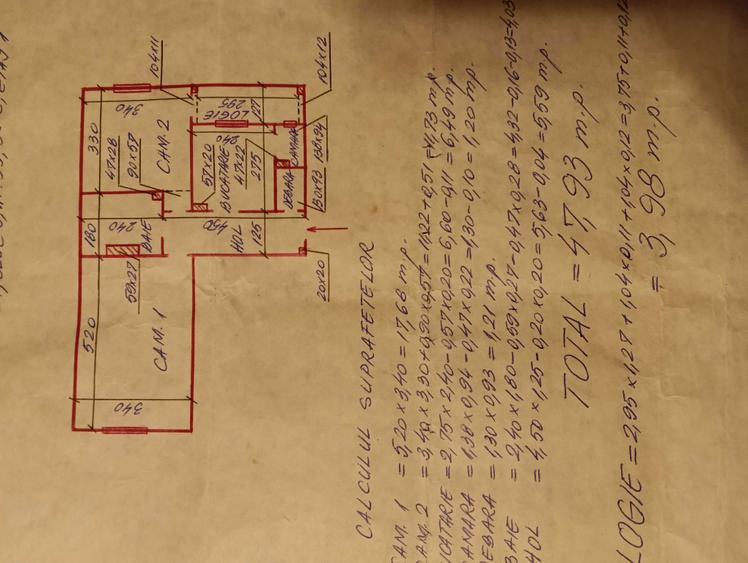 CALCULUL SUPRAFETELOR
CAM. 1 = 5,20 x 3,40 = 17,68 m.p.
CAM. 2 = 3,40 x 3,30 + 0,90 x 0,57 = 11,22 + 0,51 = 11,73 m.p.
BUCATARIE = 2,75 x 2,40 - 0,57 x 0,20 = 6,60 - 0,11 = 6,49 m.p.
CAMARA = 1,38 x 0,94 - 0,47 x 0,22 = 1,30 - 0,10 = 1,20 m.p.
DEBARA = 1,30 x 0,93 = 1,21 m.p.
BAIE = 2,40 x 1,80 - 0,59 x 0,27 - 0,47 x 0,28 = 4,32 - 0,16 - 0,13 = 4,03
HOL = 4,50 x 1,25 - 0,20 x 0,20 = 5,63 - 0,04 = 5,59 m.p.
TOTAL = 47,93 m.p.
LOGIE = 2,95 x 1,27 + 1,04 x 0,11 + 1,04 x 0,12 = 3,75 + 0,11 + 0,12
= 3,98 m.p.
520
180
330
340
CAM. 1
59x27
240
BAIE
47x28
90x57
CAM. 2
340
104x11
295
LOGIE
127
104x12
240
BUCATARIE
57x20
47x22
275
CAMARA
138x94
DEBARA
130x93
450
HOL
125
20x20
340